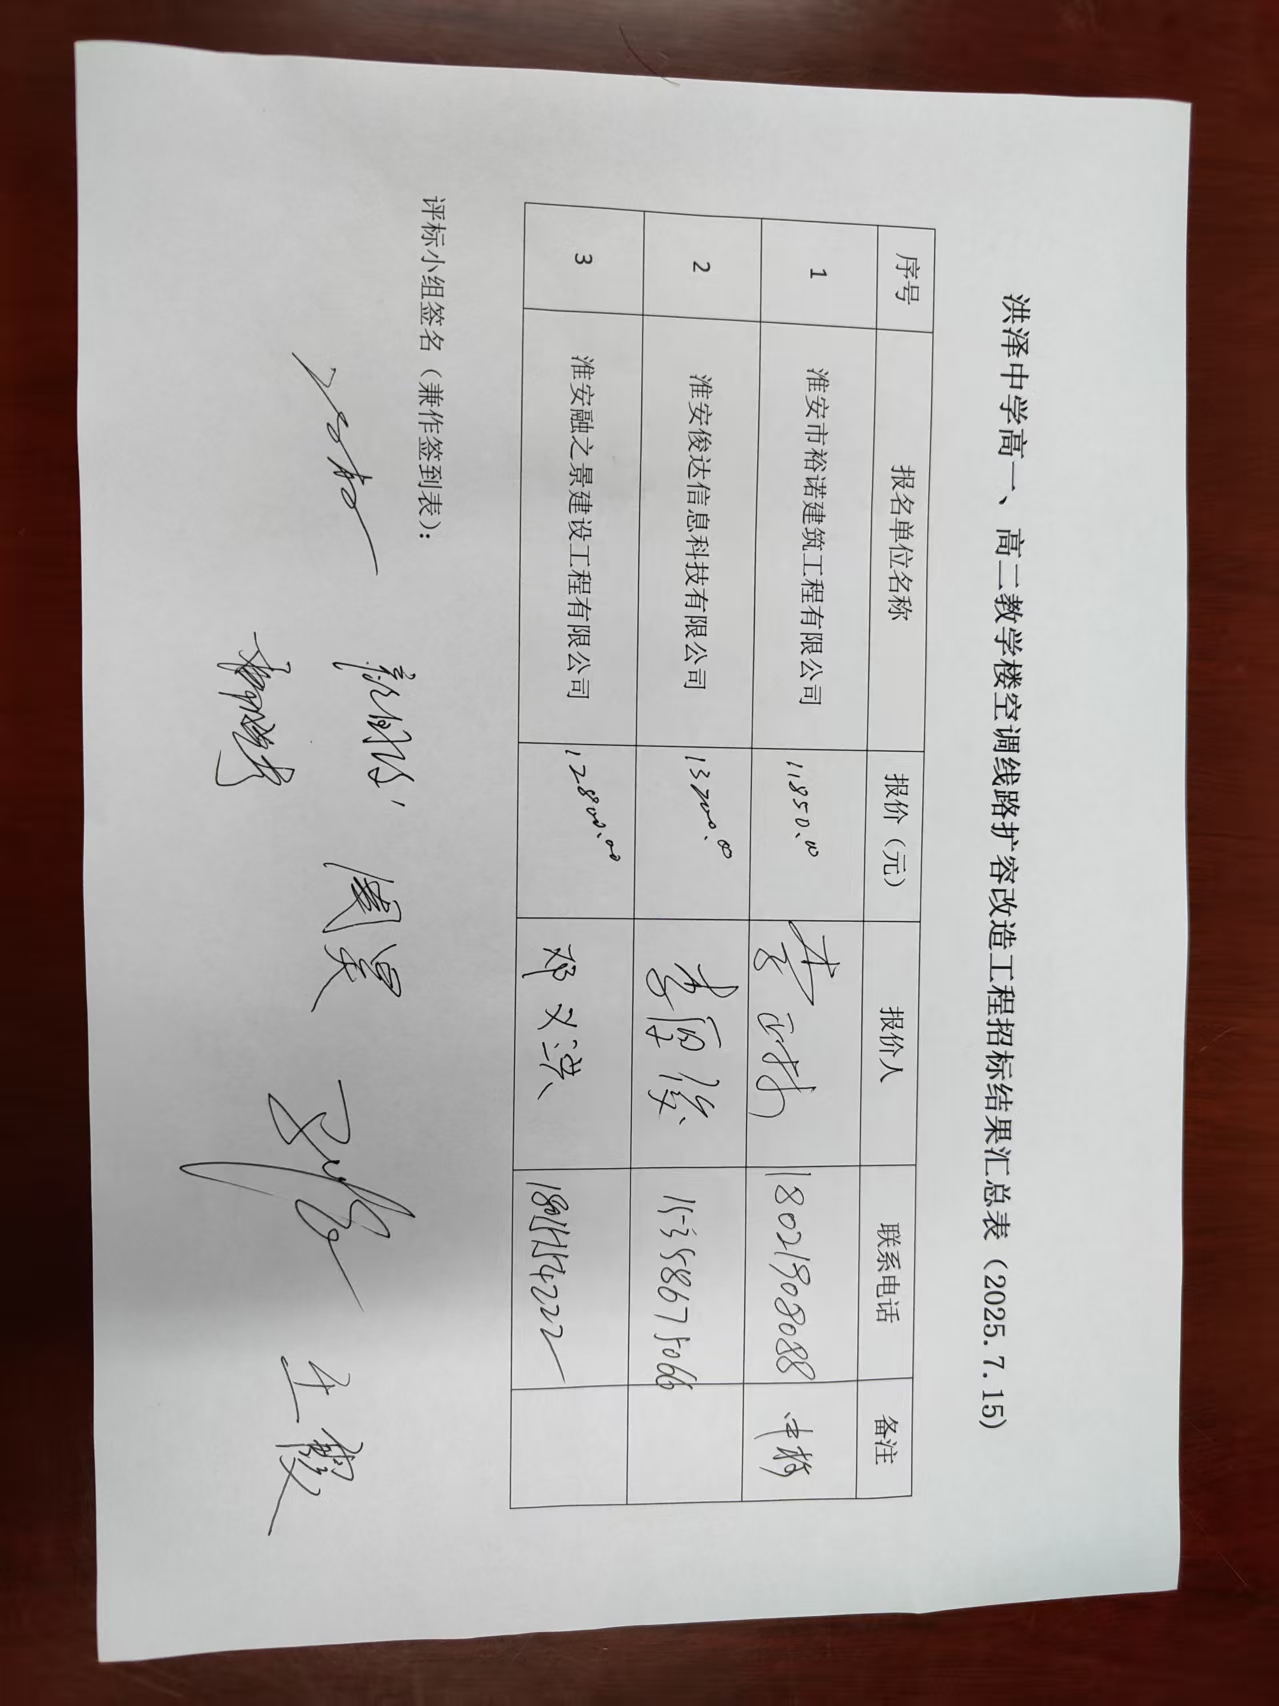 洪泽中学高一、高二教学楼空调线路扩容改造工程招标结果汇总表（2025.7.15）
序号 报名单位名称 报价（元） 报价人 联系电话 备注
1 淮安市裕诺建筑工程有限公司 11850.00 李 18021908088 中标
2 淮安俊达信息科技有限公司 13200.00 李 俊 15358675066
3 淮安融之景建设工程有限公司 12800.00 邓义洪 18015154222
评标小组签名（兼作签到表）：
周昊 王霞